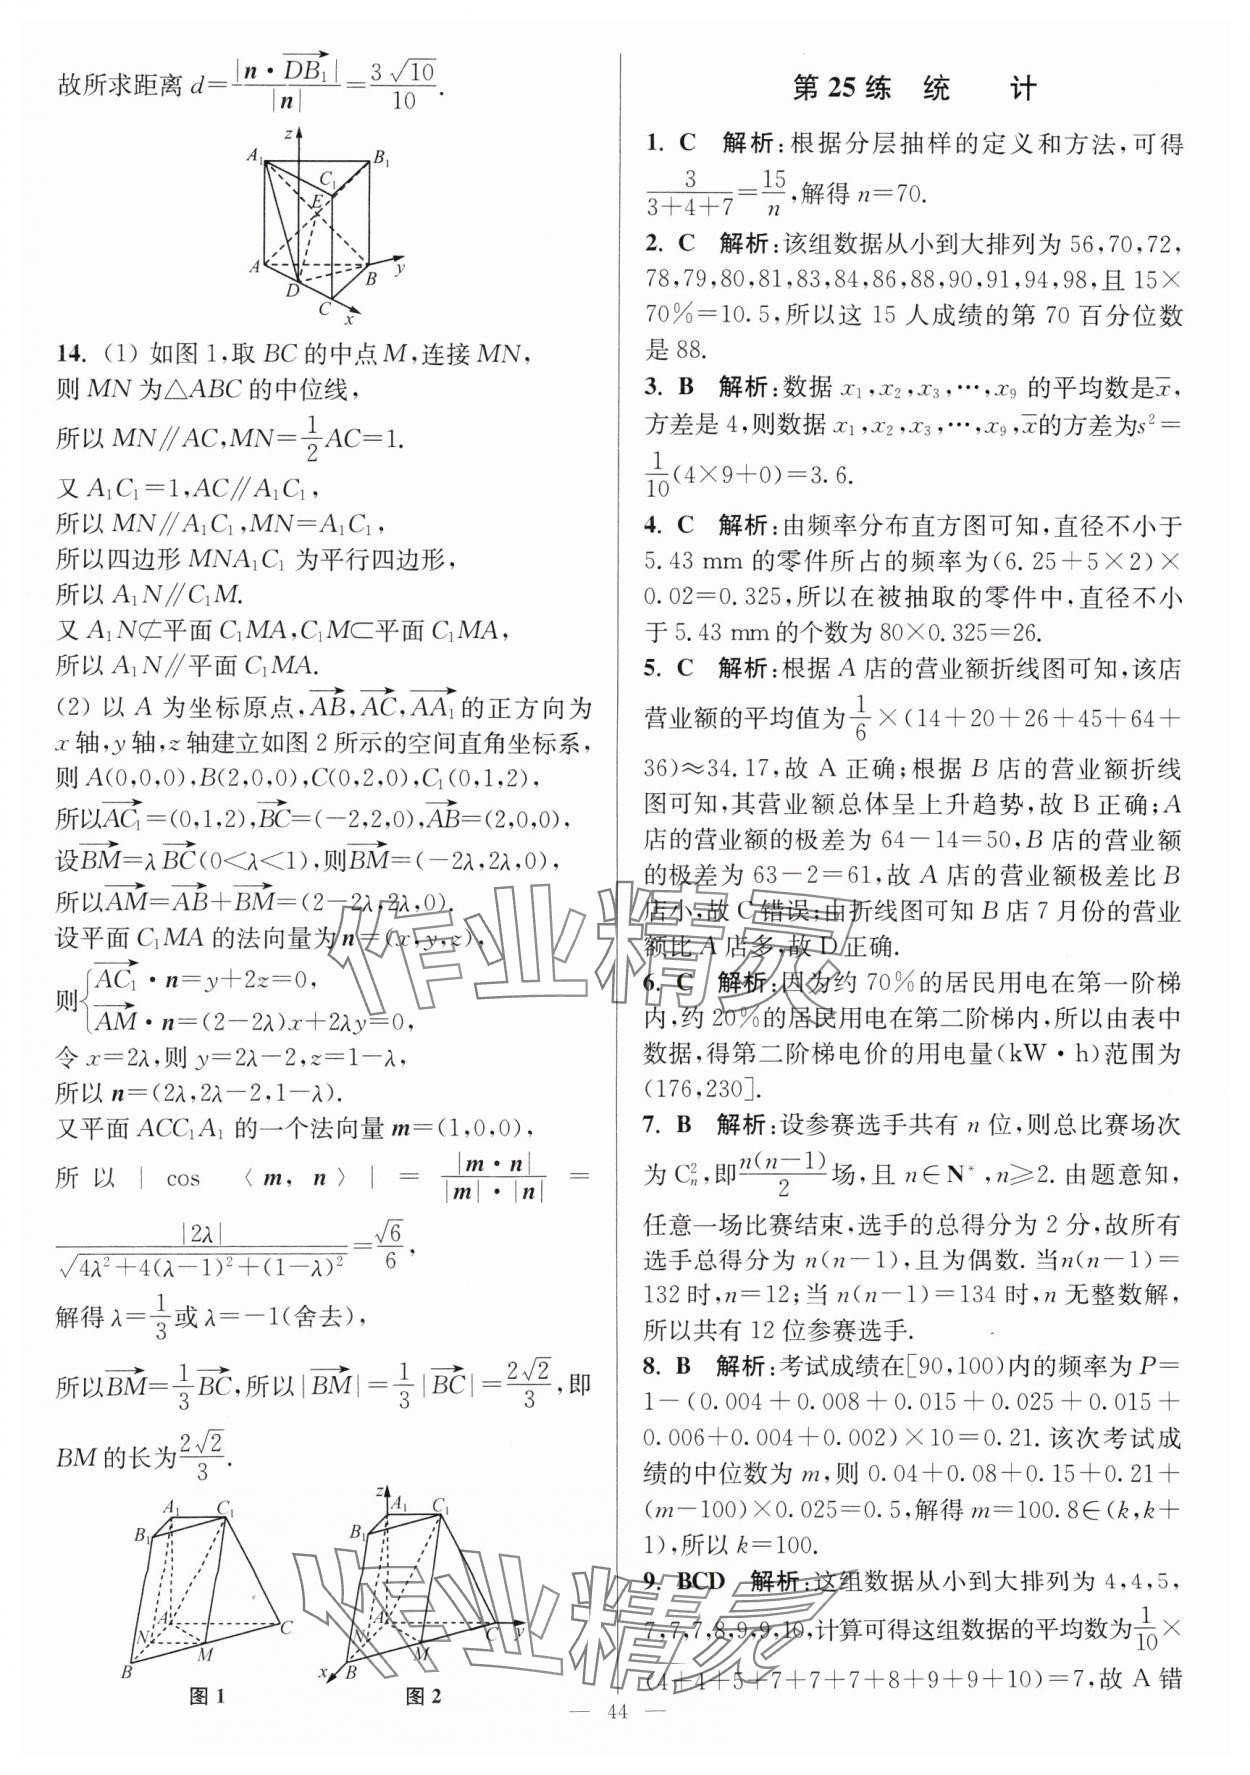 故所求距离 d=|n·DB₁|/|n|=3√10/10.
z
A₁ B₁
C₁
E
A B y
D
C x
14. (1) 如图 1,取 BC 的中点 M,连接 MN,
则 MN 为△ABC 的中位线,
所以 MN∥AC,MN=1/2AC=1.
又 A₁C₁=1,AC∥A₁C₁,
所以 MN∥A₁C₁,MN=A₁C₁,
所以四边形 MNA₁C₁ 为平行四边形,
所以 A₁N∥C₁M.
又 A₁N⊄平面 C₁MA,C₁M⊂平面 C₁MA,
所以 A₁N∥平面 C₁MA.
(2) 以 A 为坐标原点,AB,AC,AA₁的正方向为
x 轴,y 轴,z 轴建立如图 2 所示的空间直角坐标系,
则 A(0,0,0),B(2,0,0),C(0,2,0),C₁(0,1,2),
所以AC₁=(0,1,2),BC=(-2,2,0),AB=(2,0,0),
设BM=λBC(0<λ<1),则BM=(-2λ,2λ,0),
所以AM=AB+BM=(2-2λ,2λ,0).
设平面 C₁MA 的法向量为 n=(x,y,z),
则{AC₁·n=y+2z=0,
AM·n=(2-2λ)x+2λy=0,
令 x=2λ,则 y=2λ-2,z=1-λ,
所以 n=(2λ,2λ-2,1-λ).
又平面 ACC₁A₁ 的一个法向量 m=(1,0,0),
所以 | cos 〈m, n〉| = |m·n|/|m|·|n| =
|2λ|/√4λ²+4(λ-1)²+(1-λ)²=√6/6,
解得 λ=1/3或 λ=-1(舍去),
所以BM=1/3BC,所以|BM|=1/3|BC|=2√2/3,即
BM 的长为2√2/3.
A₁ C₁
B₁
A
N C
M
B
图 1
z
A₁ C₁
B₁
A
N C y
M
x B
图 2
第 25 练 统 计
1. C 解析:根据分层抽样的定义和方法,可得
3/3+4+7=15/n,解得 n=70.
2. C 解析:该组数据从小到大排列为 56,70,72,
78,79,80,81,83,84,86,88,90,91,94,98,且 15×
70%=10.5,所以这 15 人成绩的第 70 百分位数
是 88.
3. B 解析:数据 x₁,x₂,x₃,…,x₉ 的平均数是x̄,
方差是 4,则数据 x₁,x₂,x₃,…,x₉,x̄的方差为s²=
1/10(4×9+0)=3.6.
4. C 解析:由频率分布直方图可知,直径不小于
5.43 mm 的零件所占的频率为(6.25+5×2)×
0.02=0.325,所以在被抽取的零件中,直径不小
于 5.43 mm 的个数为 80×0.325=26.
5. C 解析:根据 A 店的营业额折线图可知,该店
营业额的平均值为1/6×(14+20+26+45+64+
36)≈34.17,故 A 正确;根据 B 店的营业额折线
图可知,其营业额总体呈上升趋势,故 B 正确;A
店的营业额的极差为 64-14=50,B 店的营业额
的极差为 63-2=61,故 A 店的营业额极差比 B
店小,故 C 错误;由折线图可知 B 店 7 月份的营业
额比 A 店多,故 D 正确.
6. C 解析:因为约 70%的居民用电在第一阶梯
内,约 20%的居民用电在第二阶梯内,所以由表中
数据,得第二阶梯电价的用电量(kW·h)范围为
(176,230].
7. B 解析:设参赛选手共有 n 位,则总比赛场次
为 C²ₙ,即n(n-1)/2场,且 n∈N*,n≥2. 由题意知,
任意一场比赛结束,选手的总得分为 2 分,故所有
选手总得分为 n(n-1),且为偶数. 当n(n-1)=
132 时,n=12;当 n(n-1)=134 时,n 无整数解,
所以共有 12 位参赛选手.
8. B 解析:考试成绩在[90,100)内的频率为 P=
1-(0.004+0.008+0.015+0.025+0.015+
0.006+0.004+0.002)×10=0.21. 该次考试成
绩的中位数为 m,则 0.04+0.08+0.15+0.21+
(m-100)×0.025=0.5,解得 m=100.8∈(k,k+
1),所以 k=100.
9. BCD 解析:这组数据从小到大排列为 4,4,5,
7,7,7,8,9,9,10,计算可得这组数据的平均数为1/10×
(4+4+5+7+7+7+8+9+9+10)=7,故 A 错
作业精灵
作业精灵
— 44 —